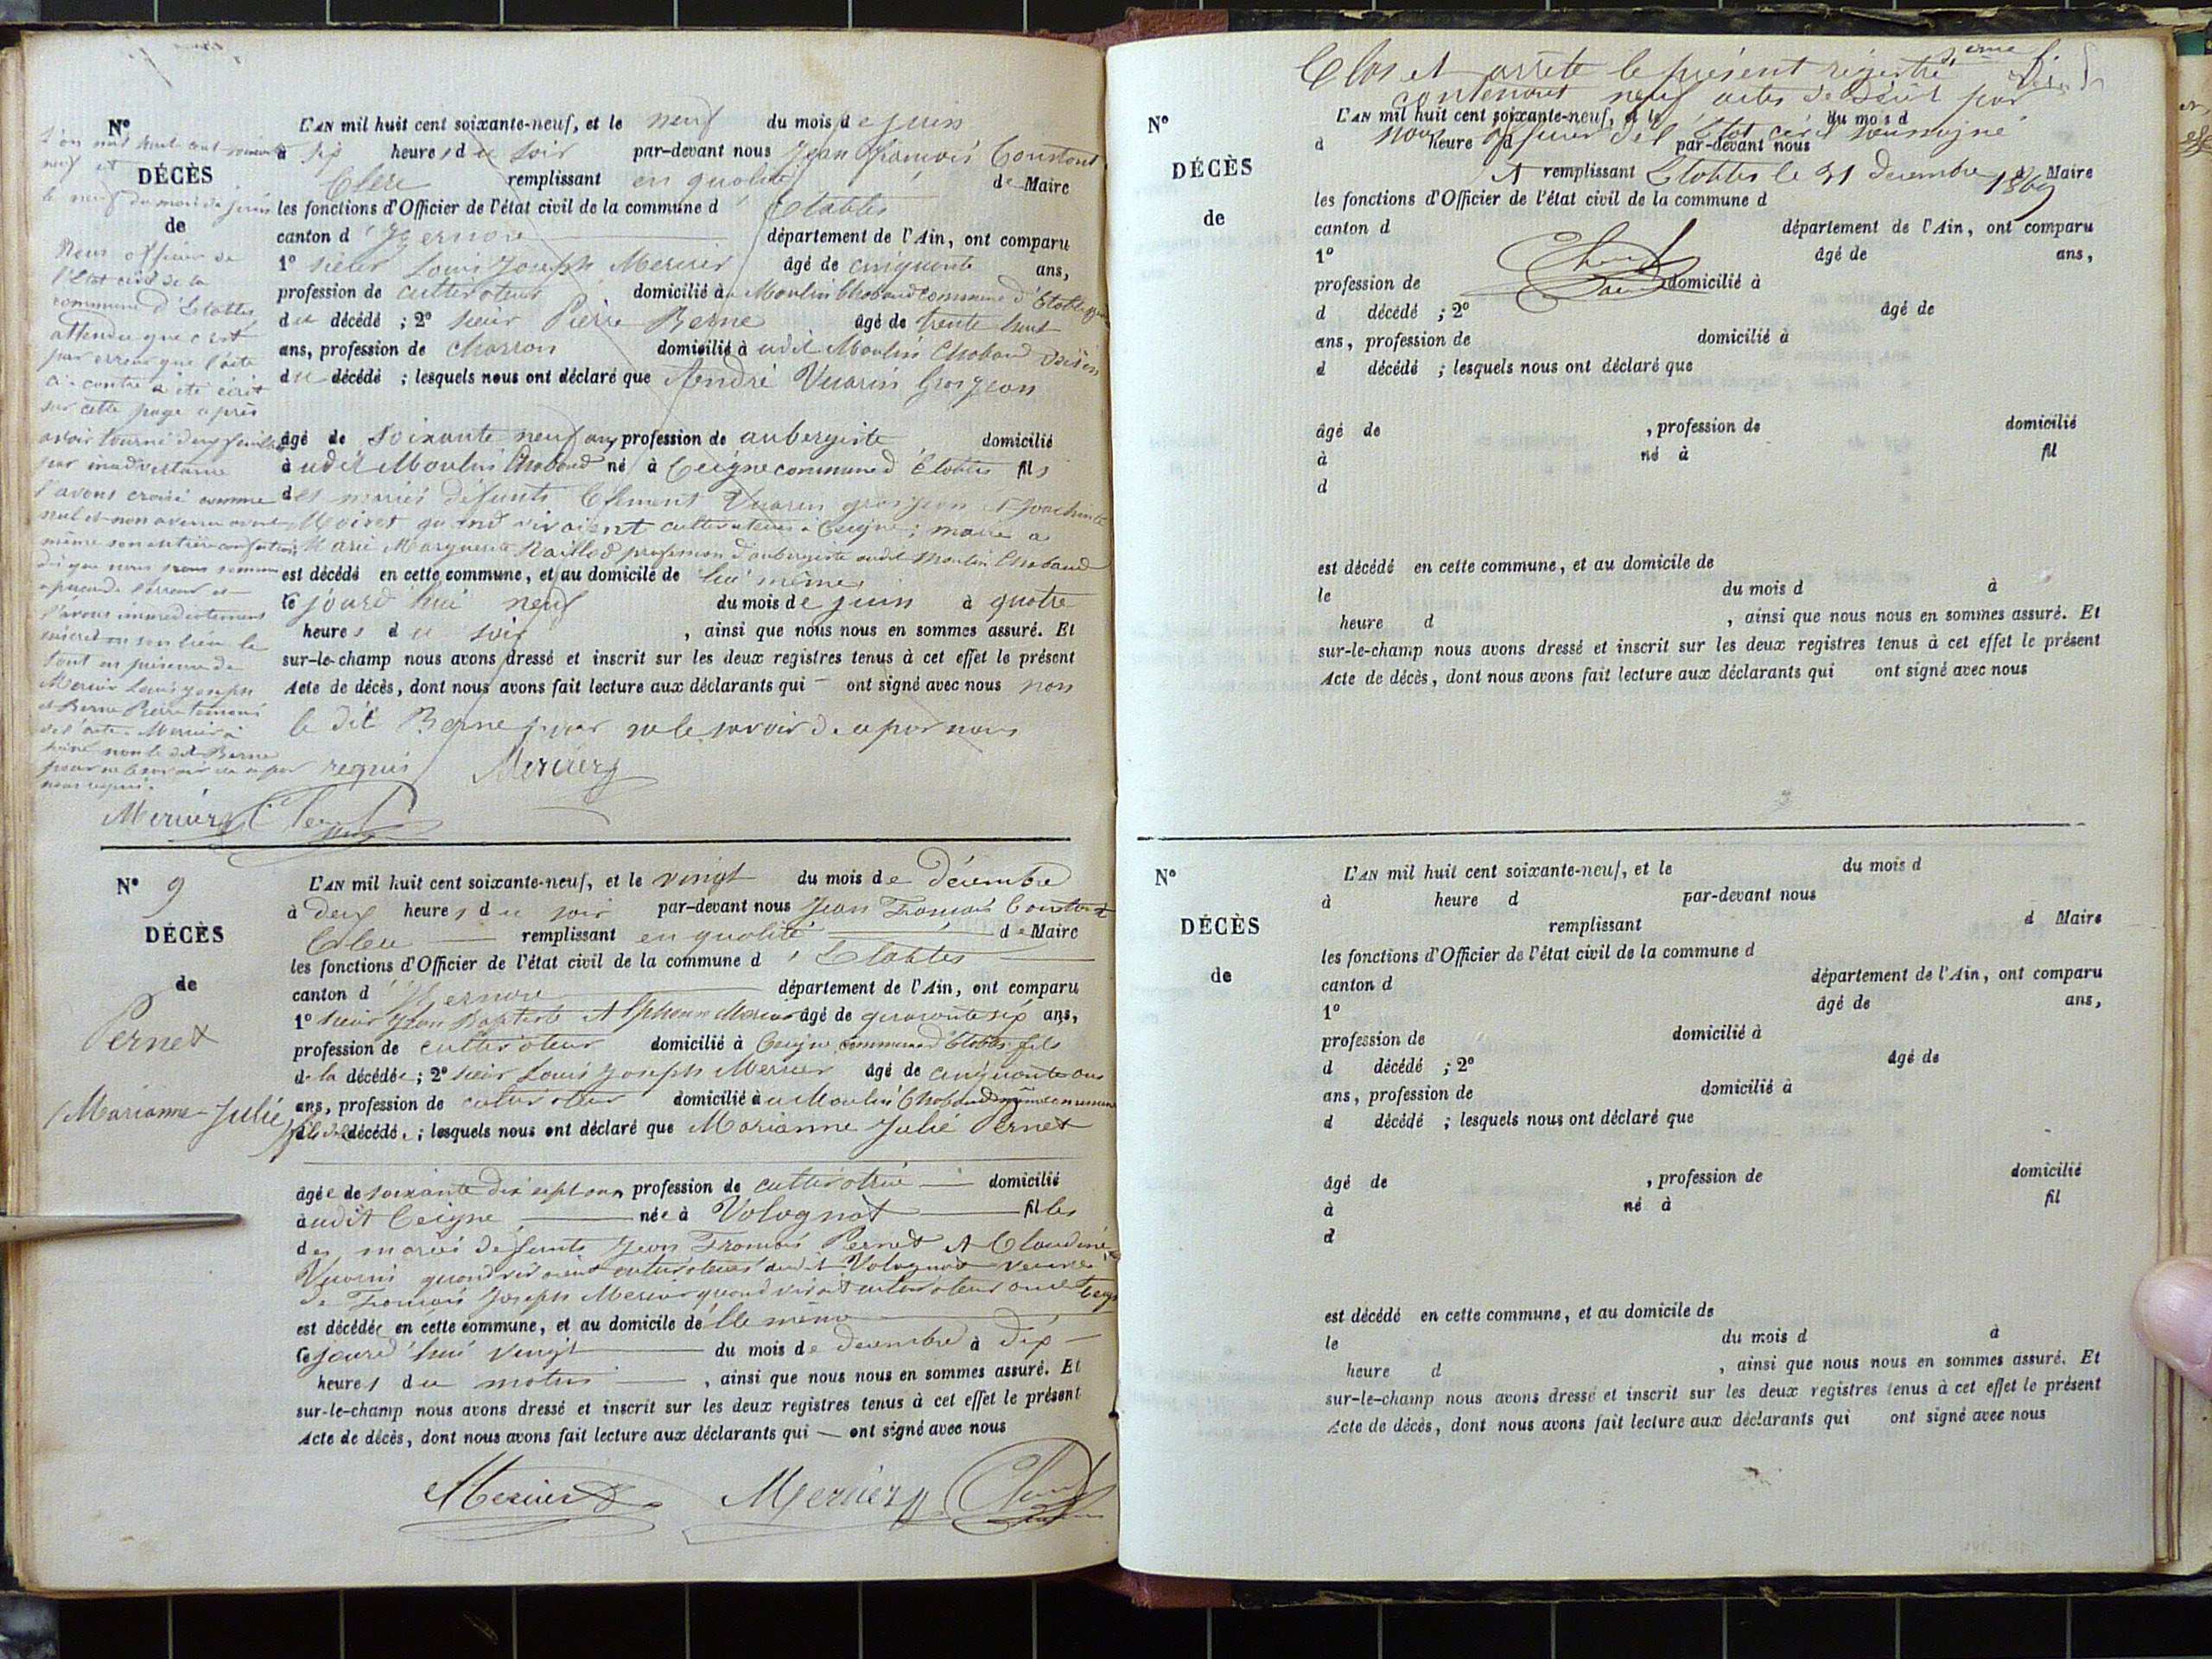 N°
DÉCÈS
de
L'an mil huit cent soixante
neuf et
le neuf du mois de juin
Nous officier de
l'Etat civil de la
commune d'Etables
attendu que c'est
par erreur que l'acte
ci-contre a été écrit
sur cette page après
avoir tourné deux feuillets
par inadvertance
l'avons croisé comme
nul et non avenu avant
même son entière confection
dès que nous nous sommes
aperçu de l'erreur et
l'avons immédiatement
en son lieu le
tout en présence de
Mercier Louis Joseph
et Berne Pierre témoins
de l'acte Mercier a
signé non le dit Berne
pour ne le savoir de ce par
nous requis.
Mercier Clerc
L'AN mil huit cent soixante-neuf, et le neuf du mois de juin
à six heures du soir par-devant nous Jean François Constant
Clerc remplissant en qualité de Maire
les fonctions d'Officier de l'état civil de la commune d'Etables
canton d'Izernore département de l'Ain, ont comparu
1° sieur Louis Joseph Mercier âgé de cinquante ans,
profession de cultivateur domicilié au Moulin Chabaud commune d'Etables
du décédé ; 2° sieur Pierre Berne âgé de trente huit
ans, profession de charron domicilié à udit Moulin Chabaud voisin
du décédé ; lesquels nous ont déclaré que André Vuarin Grosjean
âgé de soixante neuf ans profession de aubergiste domicilié
à udit Moulin Chabaud né à Ceigne commune d'Etables fils
des mariés défunts Clément Vuarin grosjean et
Moiret quand vivaient cultivateurs à Ceigne ; marié à
Marie Marguerite profession d'aubergiste audit Moulin Chabaud
est décédé en cette commune, et au domicile de lui même
le jourd'hui neuf du mois de juin à quatre
heures du soir , ainsi que nous nous en sommes assuré. Et
sur-le-champ nous avons dressé et inscrit sur les deux registres tenus à cet effet le présent
Acte de décès, dont nous avons fait lecture aux déclarants qui ont signé avec nous non
le dit Berne pour ne le savoir de ce par nous
requis Mercier
N° 9
DÉCÈS
de
Pernet
Marianne Julie
L'AN mil huit cent soixante-neuf, et le vingt du mois de Décembre
à deux heures du soir par-devant nous Jean François Constant
Clerc remplissant en qualité de Maire
les fonctions d'Officier de l'état civil de la commune d'Etables
canton d'Izernore département de l'Ain, ont comparu
1° sieur Jean Baptiste Alphonse Mercier âgé de quarante six ans,
profession de cultivateur domicilié à Ceigne commune d'Etables fils
de la décédée ; 2° sieur Louis Joseph Mercier âgé de cinquante ans
ans, profession de cultivateur domicilié à u Moulin Chabaud même commune
décédée ; lesquels nous ont déclaré que Marianne Julie Pernet
âgée de soixante dix sept ans profession de cultivatrice domicilié
à udit Ceigne née à Volognat fille
des mariés défunts Jean François Pernet et Claudine
Vuarin quand vivaient cultivateurs audit Volognat veuve
de François Joseph Mercier quand vivait cultivateur audit Ceigne
est décédée en cette commune, et au domicile de Elle même
le jourd'hui vingt du mois de décembre à dix
heures du matin , ainsi que nous nous en sommes assuré. Et
sur-le-champ nous avons dressé et inscrit sur les deux registres tenus à cet effet le présent
Acte de décès, dont nous avons fait lecture aux déclarants qui ont signé avec nous
Mercier Mercier Clerc
Clos et arrêté le présent registre
contenant neuf actes de Décès par
nous officier de l'Etat civil soussigné
A Etables le 31 décembre 1869
Clerc
N°
DÉCÈS
de
L'AN mil huit cent soixante-neuf, et le du mois d
à heure d par-devant nous
remplissant d Maire
les fonctions d'Officier de l'état civil de la commune d
canton d département de l'Ain, ont comparu
1° âgé de ans,
profession de domicilié à
d décédé ; 2° âgé de
ans, profession de domicilié à
d décédé ; lesquels nous ont déclaré que
âgé de , profession de domicilié
à né à fil
d
est décédé en cette commune, et au domicile de
le du mois d à
heure d , ainsi que nous nous en sommes assuré. Et
sur-le-champ nous avons dressé et inscrit sur les deux registres tenus à cet effet le présent
Acte de décès, dont nous avons fait lecture aux déclarants qui ont signé avec nous
N°
DÉCÈS
de
L'AN mil huit cent soixante-neuf, et le du mois d
à heure d par-devant nous
remplissant d Maire
les fonctions d'Officier de l'état civil de la commune d
canton d département de l'Ain, ont comparu
1° âgé de ans,
profession de domicilié à
d décédé ; 2° âgé de
ans, profession de domicilié à
d décédé ; lesquels nous ont déclaré que
âgé de , profession de domicilié
à né à fil
d
est décédé en cette commune, et au domicile de
le du mois d à
heure d , ainsi que nous nous en sommes assuré. Et
sur-le-champ nous avons dressé et inscrit sur les deux registres tenus à cet effet le présent
Acte de décès, dont nous avons fait lecture aux déclarants qui ont signé avec nous